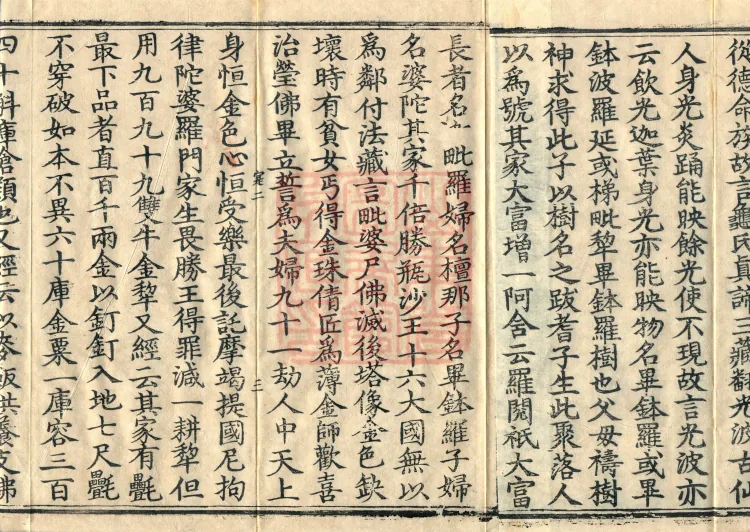 從德命族故言龜氏真諦三藏翻光波古仙
人身光炎踊能映餘光使不現故言光波亦
云飲光迦葉身光亦能映物名畢鉢羅或畢
鉢波羅延或梯毗犂畢鉢羅樹也父母禱樹
神求得此子以樹名之跋耆子生此聚落人
以爲號其家大富增一阿舍云羅閱祇大富
長者名 毗羅婦名檀那子名畢鉢羅子婦
名婆陀其家千倍勝瓶沙王十六大國無以
爲鄰付法藏言毗婆尸佛滅後塔像金色缺
壞時有貧女丐得金珠倩匠爲薄金師歡喜
治瑩佛畢立誓爲夫婦九十一劫人中天上
㝎二 三
身恒金色心恒受樂最後託摩竭提國尼拘
律陀婆羅門家生畏勝王得罪減一耕犂但
用九百九十九雙牛金犂又經云其家有㲲
最下品者直百千兩金以釘釘入地七尺㲲
不穿破如本不異六十庫金粟一庫容三百
四十斛庫倉類也又經云以麥飯供養支佛